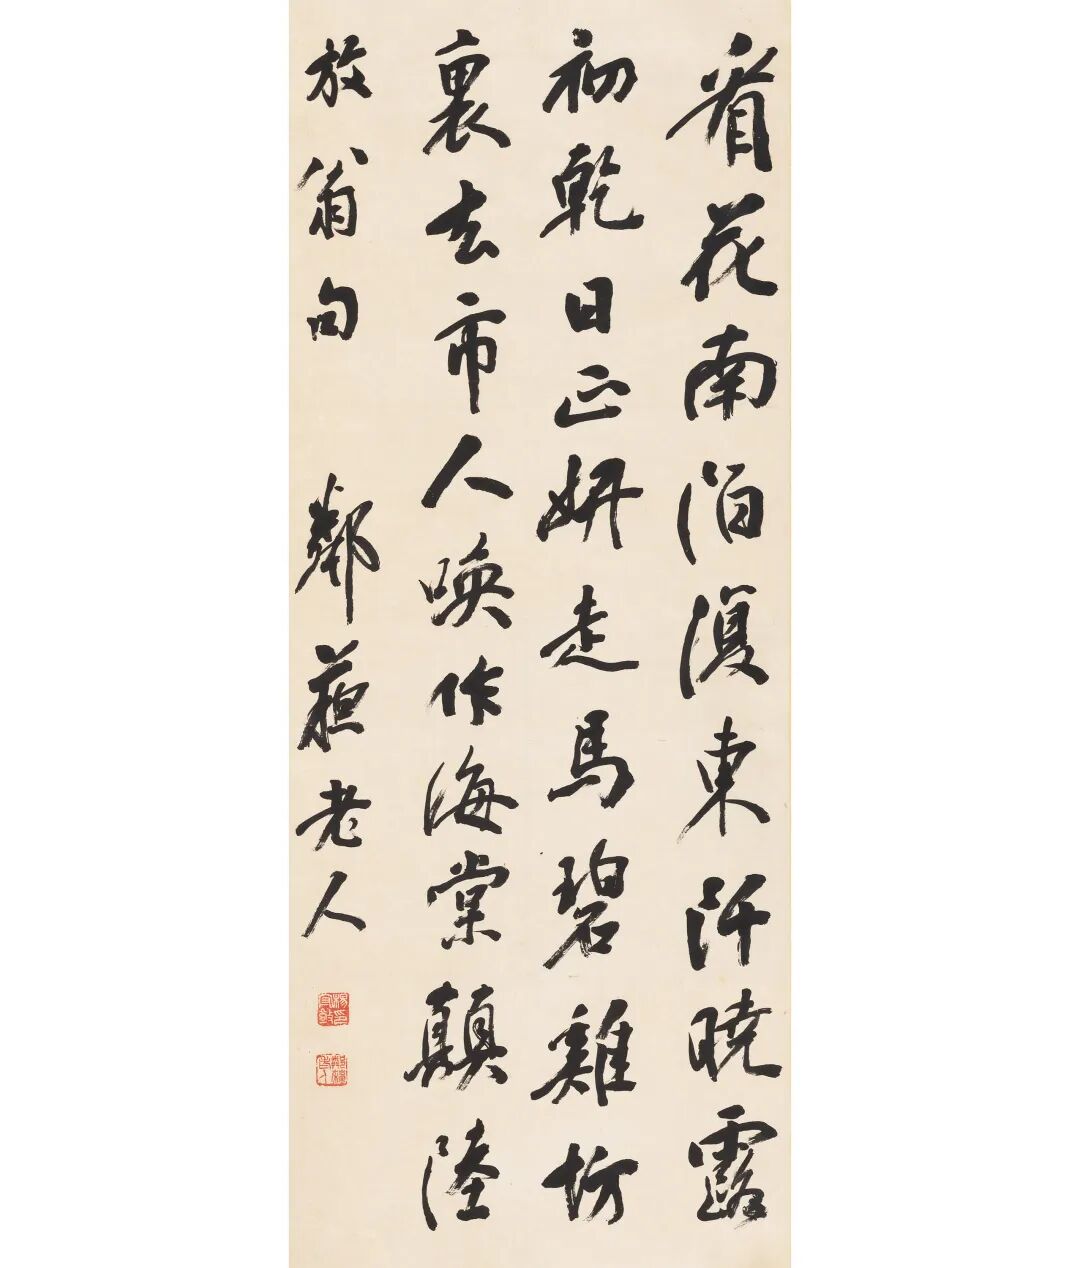 看花南陌復東阡曉露
初乾日正妍走馬碧雞坊
裏去市人喚作海棠顛陸
放翁句 鄰蘇老人